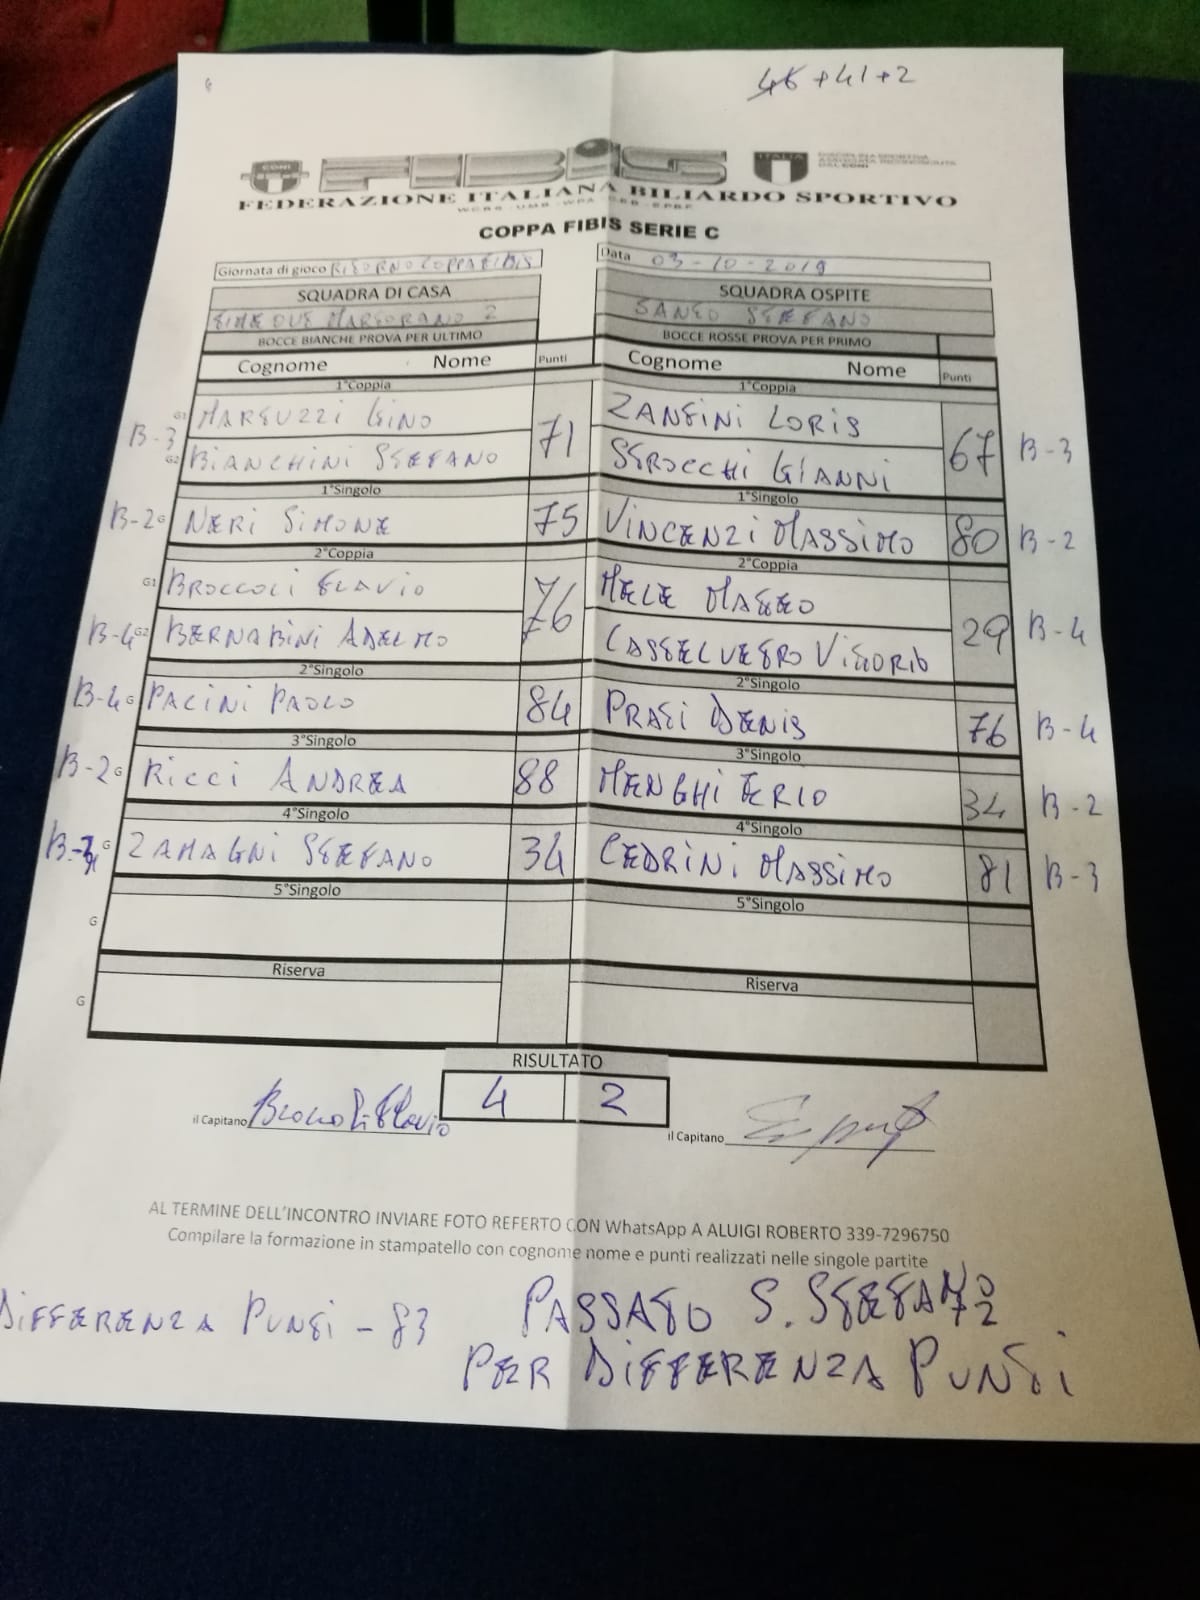 46 +41+2
FIBIS
CONI
ITALIA
FEDERAZIONE ITALIANA BILIARDO SPORTIVO
COPPA FIBIS SERIE C
Giornata di gioco RITORNO COPPA FIBIS
Data 03-10-2019
SQUADRA DI CASA
SQUADRA OSPITE
2
SANTO STEFANO
BOCCE BIANCHE PROVA PER ULTIMO
BOCCE ROSSE PROVA PER PRIMO
Cognome Nome Punti
Cognome Nome Punti
1°Coppia
1°Coppia
G1 MARTUZZI GINO
ZANTINI LORIS
B-3 71
67 B-3
G2 BIANCHINI STEFANO
STROCCHI GIANNI
1°Singolo
1°Singolo
B-2 G NERI SIMONE 75
VINCENZI MASSIMO 80 B-2
2°Coppia
2°Coppia
G1 BROCCOLI FLAVIO
MELE MATTEO
76
29 B-4
B-4 G2 BERNABINI ADELMO
CASTELVETRO VITTORIO
2°Singolo
2°Singolo
B-4 G PACINI PAOLO 84
PRATI DENIS 76 B-4
3°Singolo
3°Singolo
B-2 G RICCI ANDREA 88
MENGHI TERIO 34 B-2
4°Singolo
4°Singolo
B-3 G ZAMAGNI STEFANO 34
CEDRINI MASSIMO 81 B-3
5°Singolo
5°Singolo
G
Riserva
Riserva
G
RISULTATO
4 2
il Capitano Broccoli Flavio
il Capitano
AL TERMINE DELL'INCONTRO INVIARE FOTO REFERTO CON WhatsApp A ALUIGI ROBERTO 339-7296750
Compilare la formazione in stampatello con cognome nome e punti realizzati nelle singole partite
DIFFERENZA PUNTI - 83
PASSATO S. STEFANO 2
PER DIFFERENZA PUNTI